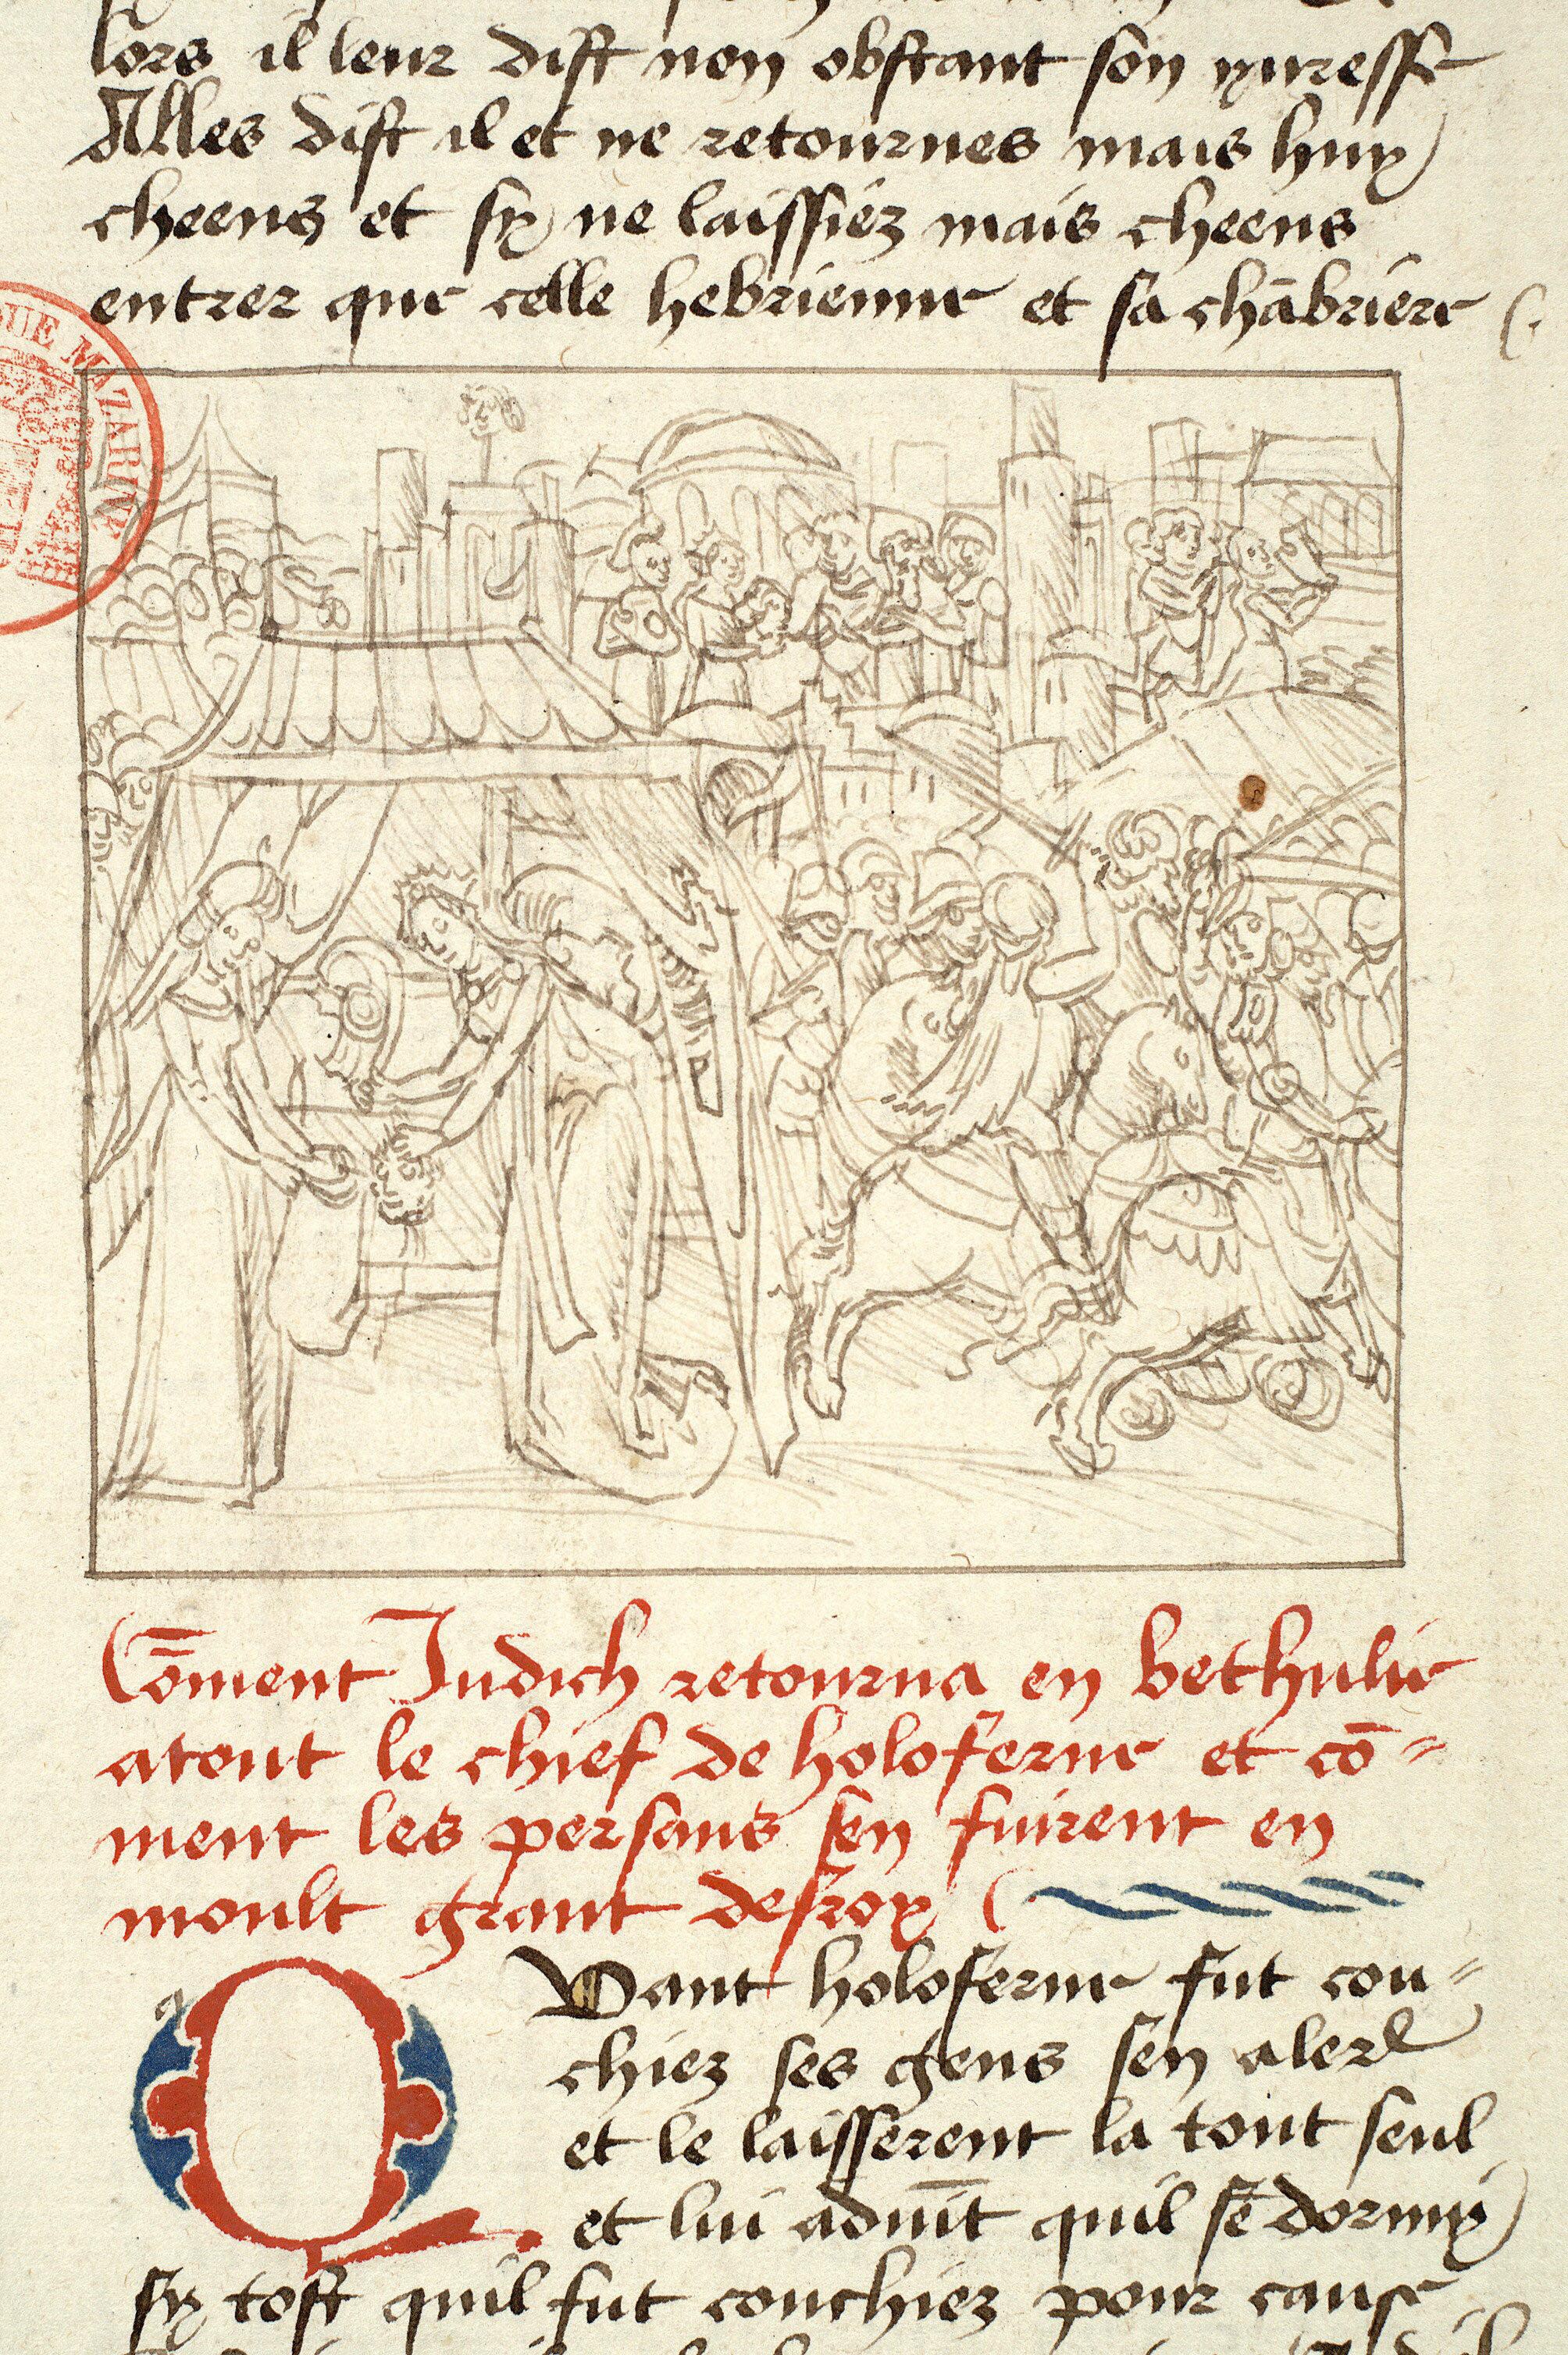 lors il leur dist non obstant son yuresse
Alles dist il et ne retournes mais huy
cheens et sy ne laissiez mais cheens
entrer que celle hebrienne et sa chābriere
QUE MAZARINE
Cōment Judich retourna en bethulie
atout le chief de holoferne et cō=
ment les persans sen fuirent en
moult grant desroy
Quant holoferne fut cou=
chiez ses gens sen aler
et le laisserent la tout seul
et lui aduīt quil sē dormy
sy tost quil fut couchiez pour cause